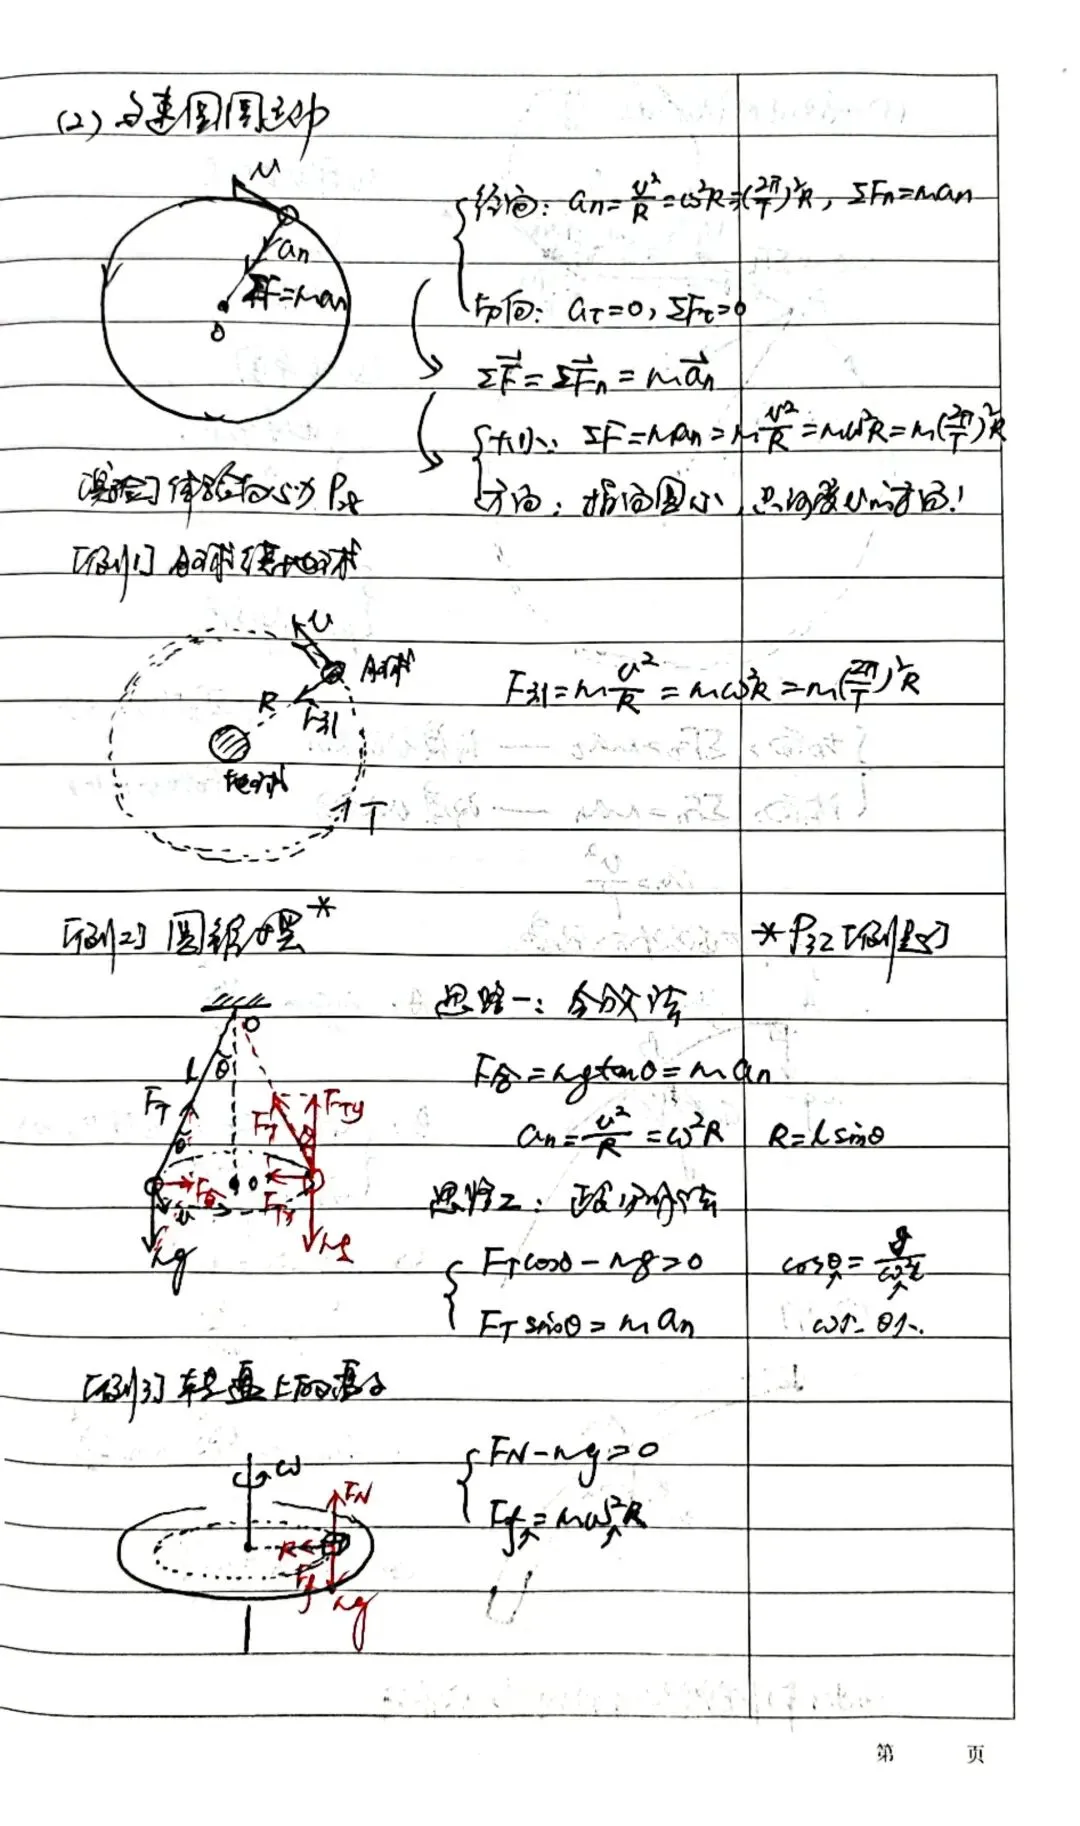 (2) 匀速圆周运动
v
an
ΣF=man
O
径向: an=v²/R=ω²R=(2π/T)²R, ΣFn=man
切向: aτ=0, ΣFτ=0
ΣF⃗=ΣF⃗n=ma⃗n
大小: ΣF=man=mv²/R=mω²R=m(2π/T)²R
方向: 指向圆心, 只改变v的方向!
[实验] 体验向心力 P28
[例1] 月球绕地球
v
月球
R
F引
地球
T
F引=mv²/R=mω²R=m(2π/T)²R
[例2] 圆锥摆*
*P32[例题5]
O
l
θ
FT
θ
F合
v
mg
O
FT
θ
FTy
FTx
mg
思路一: 合成法
F合=mgtanθ=man
an=v²/R=ω²R R=lsinθ
思路二: 正交分解法
FTcosθ-mg=0
FTsinθ=man
cosθ↑=g/ω²l↑
ω↑ θ↑.
[例3] 转盘上的
ω
FN
R
Ff
mg
FN-mg=0
Ff↑=mω²↑R
第 页